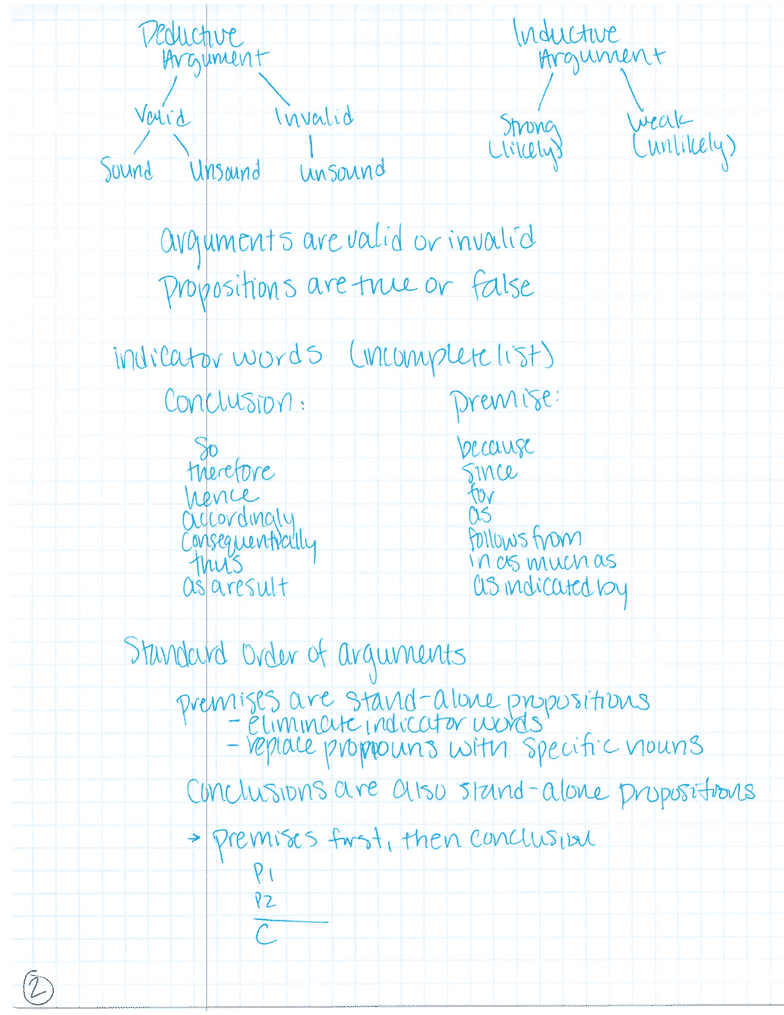 Deductive Argument
Inductive Argument
Valid Invalid
Strong (likely)
Weak (unlikely)
Sound Unsound unsound
arguments are valid or invalid
Propositions are true or false
indicator words (incomplete list)
Conclusion: premise:
So because
therefore since
hence for
accordingly as
consequentially follows from
thus in as much as
as a result as indicated by
Standard Order of arguments
premises are stand-alone propositions
- eliminate indicator words
- replace pronouns with specific nouns
Conclusions are also stand-alone propositions
→ premises first, then conclusion
P1
P2
C
2